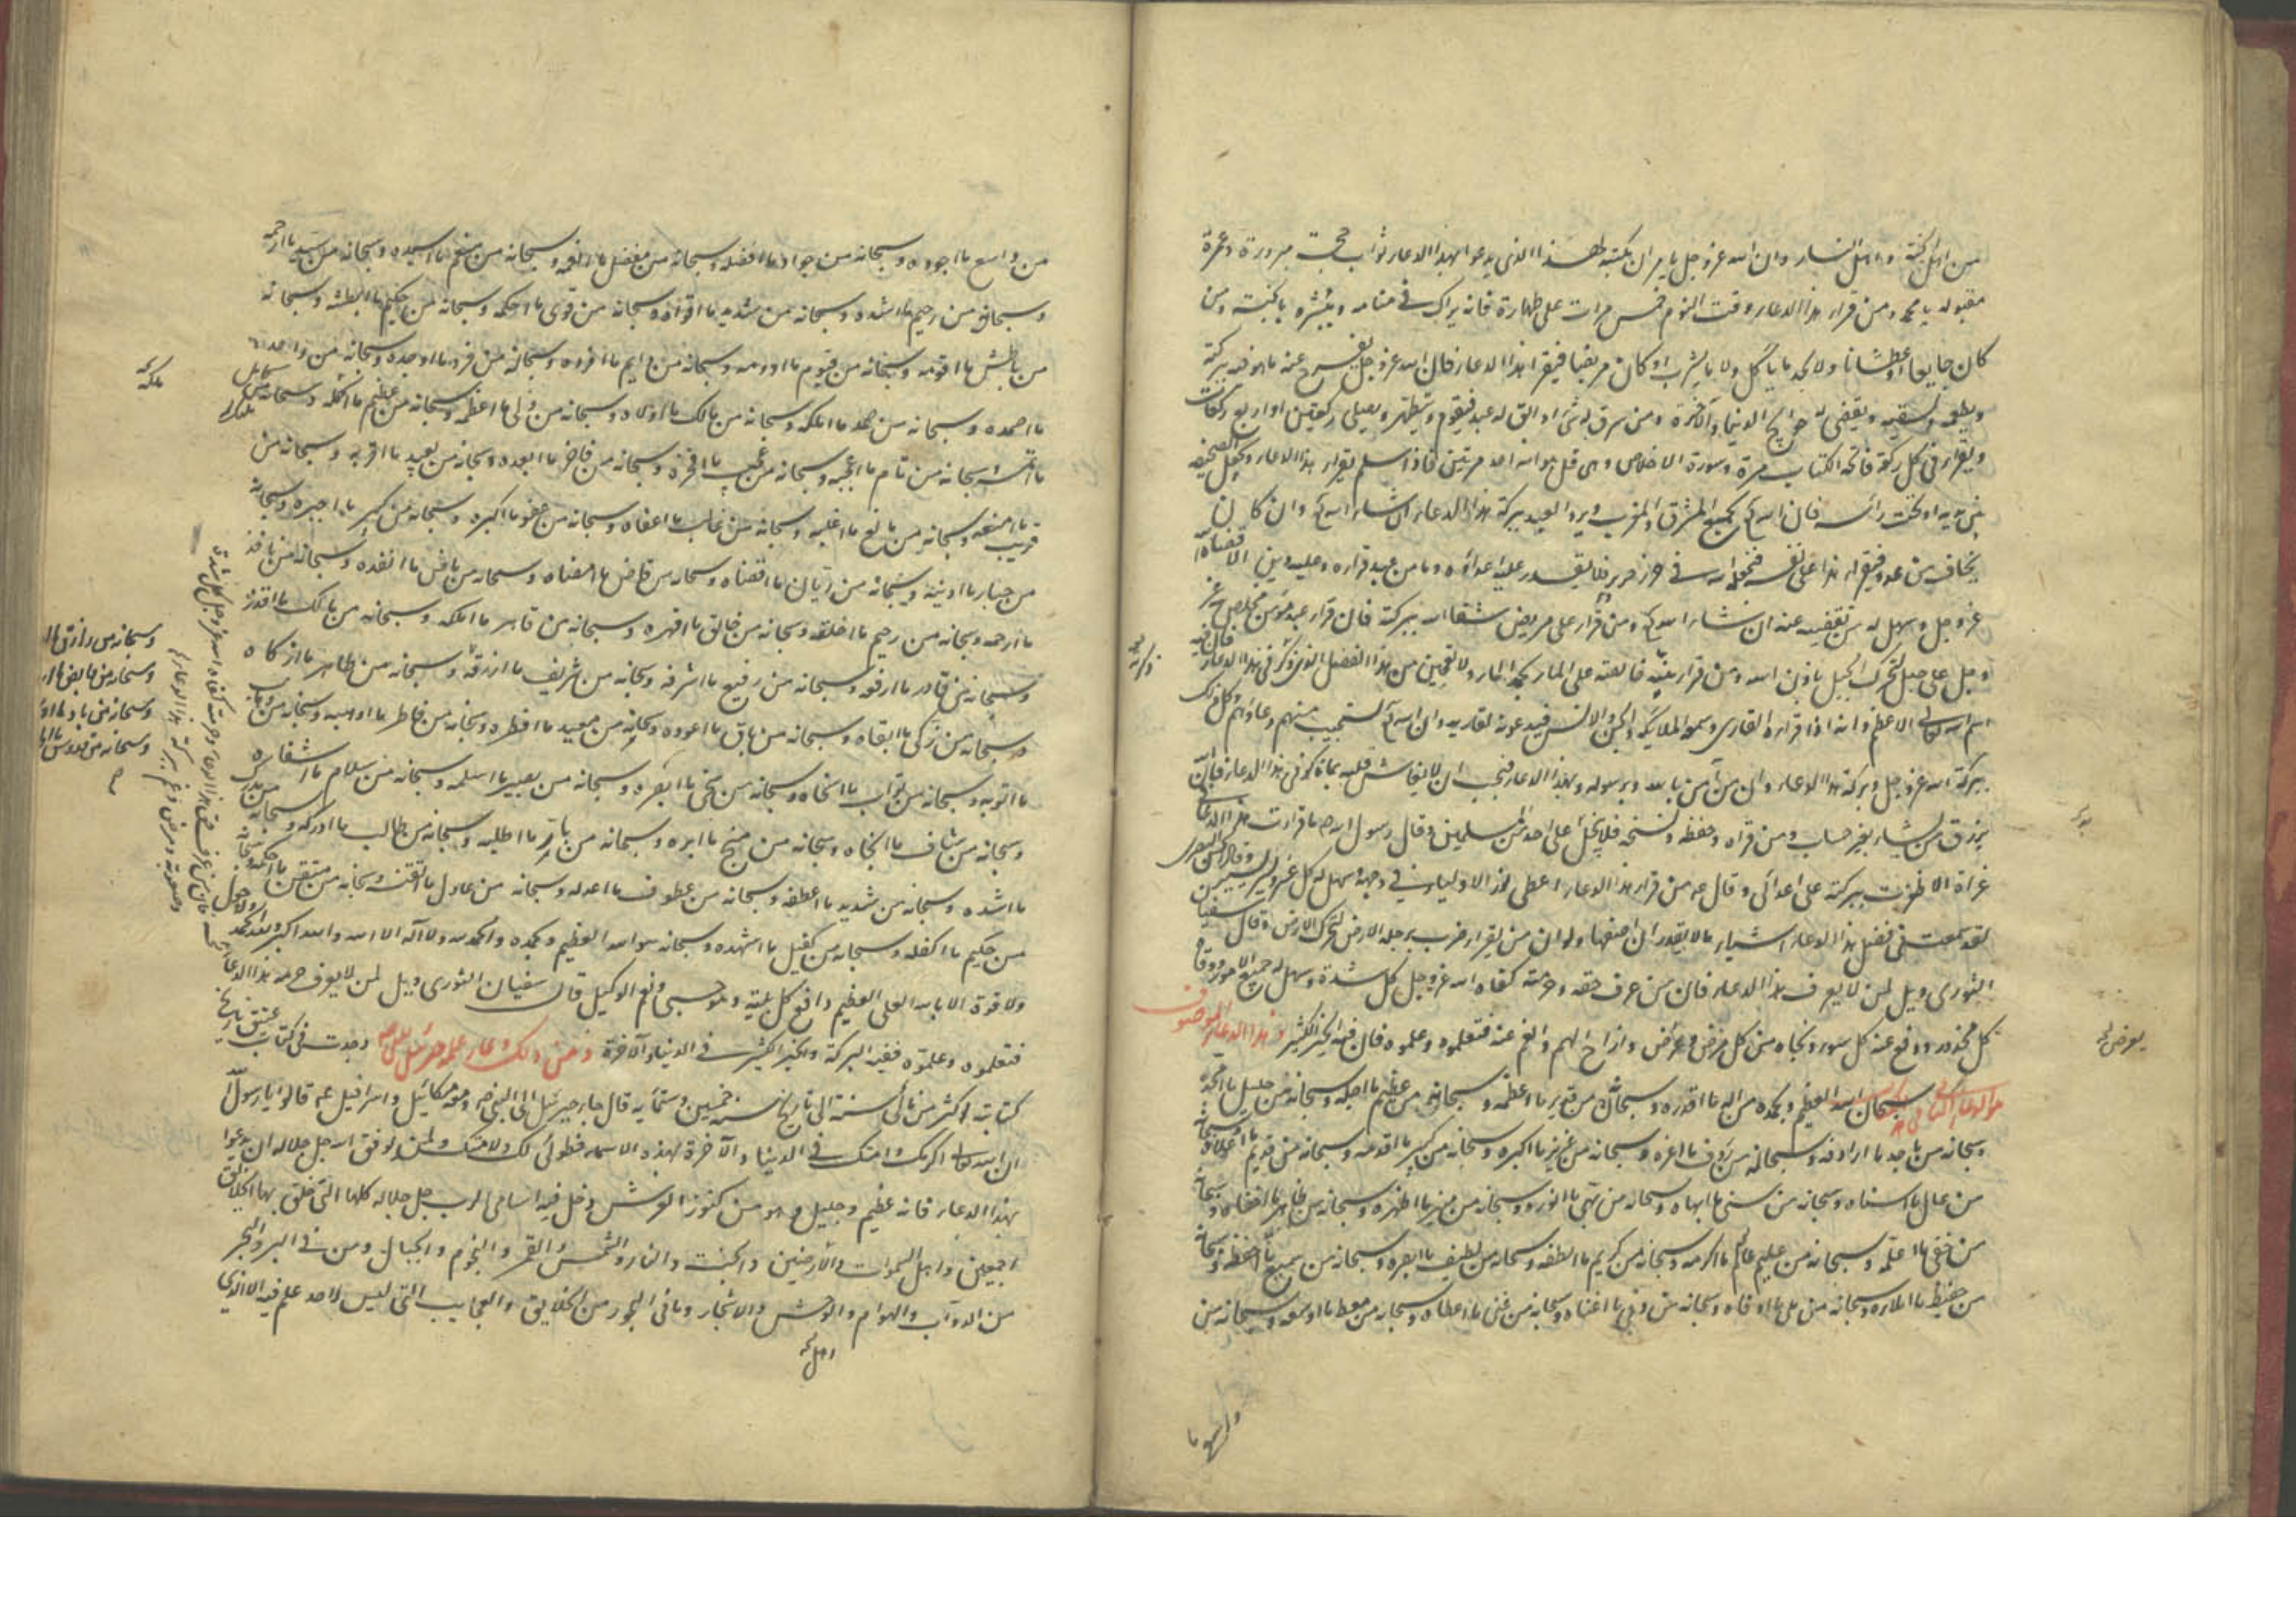 من اهل الجنة و اهل النار وان الله عز وجل يامر ان يكتب لهذا الذى يدعو بهذا الدعاء ثواب حجة مبرورة وعمرة
مقبولة يا محمد ومن قرأ هذا الدعاء وقت النوم خمس مرات على طهارة فانه يراك فى منامه وتبشره بالجنة ومن
كان جايعا او عطشانا ولا يجد ما ياكل ولا ما يشرب او كان مريضا فيقرأ هذا الدعاء فان الله عز وجل يفرج عنه ما هو فيه ببركته
ويطعمه ويسقيه ويقضى له حوايج الدنيا والآخرة ومن سرق له شئ او ابق له عبد فيقوم ويتطهر ويصلى ركعتين او اربع ركعات
ويقرأ فى كل ركعة فاتحة الكتاب مرة وسورة الاخلاص وهى قل هو الله احد مرتين فاذا سلم يقرأ هذا الدعاء ويجعل الصحيفة
بين يديه او تحت رأسه فان الله تعالى يجمع المشرق والمغرب ويرد العبد ببركة هذا الدعاء ان شاء الله تعالى وان كان
يخاف من عدو فيقرأ هذا على نفسه فيجعله الله فى حرز حريز فلا يقدر عليه اعداؤه وما من عبد قرأه وعليه دين الا قضاه الله
عز وجل وسهل له من يقضيه عنه ان شاء الله تعالى ومن قرأه على مريض شفاه الله ببركته فان قرأه عبد مؤمن مخلص لله عز
وجل على جبل لتحرك الجبل باذن الله ومن قرأه بنية خالصة على الماء لجمد الماء ولا تعجبن من هذا الفضل الذى ذكر فى هذا الدعاء فان فيه
اسم الله تعالى الاعظم وانه اذا قرأه القارى وسمعه الملايكة والجن والانس فيدعون لقاريه وان الله تعالى يستجيب منهم دعاءهم وكل ذلك
ببركة الله عز وجل وبركة هذا الدعاء وان من آمن بالله وبرسوله وبهذا الدعاء فيجب ان لا يغاش قلبه بما ذكر فى هذا الدعاء فان الله
يرزق من يشاء بغير حساب ومن قرأه وحفظه ونسخه فلا يبخل على احد من المسلمين وقال رسول الله ص ما قرأت هذا الدعاء فى
غزاة الا ظفرت ببركته على اعدائى وقال ع من قرأ هذا الدعاء اعطى نور الاولياء فى وجهه وسهل له كل عسير ويسر وقال الحسن البصرى
لقد سمعت فى فضل هذا الدعاء اشياء ما لا يقدر ان اصفها ولو ان من يقرأه ضرب برجله الارض لتحرك الارض وقال سفيان
الثورى ويل لمن لا يعرف هذا الدعاء فان من عرف حقه وحرمته كفاه الله عز وجل كل شدة وسهل له جميع الامور ووقاه
كل محذور ودفع عنه كل سوء ونجاه من كل مرض وعرض وازاح الهم والغم عنه فتعلموه وعلموه فان فيه الخير الكثير وهذا الدعاء الموصوف
سبحان الله العظيم وبحمده من اله ما اقدره وسبحانه من قدير ما اعظمه وسبحانه من عظيم ما اجله وسبحانه من جليل ما امجده
وسبحانه من ماجد ما ارأفه وسبحانه من رؤف ما اعزه وسبحانه من عزيز ما اكبره وسبحانه من كبير ما اقدمه وسبحانه من قديم ما اعلاه وسبحانه
من عال ما اسناه وسبحانه من سنى ما ابهاه وسبحانه من بهى ما انوره وسبحانه من منير ما اظهره وسبحانه من ظاهر ما اخفاه وسبحانه
من خفى ما اعلمه وسبحانه من عليم ما اكرمه وسبحانه من كريم ما الطفه وسبحانه من لطيف ما ابصره وسبحانه من سميع ما احفظه وسبحانه
من حفيظ ما املاه وسبحانه من ملى ما اوفاه وسبحانه من وفى ما اغناه وسبحانه من غنى ما اعطاه وسبحانه من معط ما اوسعه وسبحانه من
من واسع ما اجوده وسبحانه من جواد ما افضله وسبحانه من مفضل ما انعمه وسبحانه من منعم ما اسيده وسبحانه من سيد ما ارحمه
وسبحانه من رحيم ما اشده وسبحانه من شديد ما اقواه وسبحانه من قوى ما احكمه وسبحانه من حكيم ما ابطشه وسبحانه
من باطش ما اقومه وسبحانه من قيوم ما ادومه وسبحانه من دايم ما افرده وسبحانه من فرد ما اوحده وسبحانه من واحد
ما اصمده وسبحانه من صمد ما املكه وسبحانه من مالك ما اولاه وسبحانه من ولى ما اعظمه وسبحانه من عظيم ما اكمله وسبحانه من كامل
ما اتمه وسبحانه من تام ما اعجبه وسبحانه من عجيب ما افخره وسبحانه من فاخر ما ابعده وسبحانه من بعيد ما اقربه وسبحانه من
قريب ما امنعه وسبحانه من مانع ما اغلبه وسبحانه من غالب ما اعفاه وسبحانه من عفو ما اكبره وسبحانه من كبير ما اجبره وسبحانه
من جبار ما ادينه وسبحانه من ديان ما اقضاه وسبحانه من قاض ما امضاه وسبحانه من ماض ما انفذه وسبحانه من نافذ
ما ارحمه وسبحانه من رحيم ما اخلقه وسبحانه من خالق ما اقهره وسبحانه من قاهر ما املكه وسبحانه من مالك ما اقدره
وسبحانه من قادر ما ارفعه وسبحانه من رفيع ما اشرفه وسبحانه من شريف ما ارزقه وسبحانه من طاهر ما ازكاه
وسبحانه من زكى ما ابقاه وسبحانه من باق ما اعوده وسبحانه من معيد ما افطره وسبحانه من فاطر ما اوهبه وسبحانه من وهاب
ما اتوبه وسبحانه من تواب ما اسخاه وسبحانه من سخى ما ابصره وسبحانه من بصير ما اسلمه وسبحانه من سلام ما اشفاه
وسبحانه من شاف ما انجاه وسبحانه من منج ما ابره وسبحانه من بار ما اطلبه وسبحانه من طالب ما ادركه وسبحانه من مدرك
ما اشده وسبحانه من شديد ما اعطفه وسبحانه من عطوف ما اعدله وسبحانه من عادل ما اتقنه وسبحانه من متقن ما احكمه وسبحانه
من حكيم ما اكفله وسبحانه من كفيل ما اشهده وسبحانه هو الله العظيم وبحمده والحمد لله ولا اله الا الله والله اكبر ولله الحمد ولا حول
ولا قوة الا بالله العلى العظيم دافع كل بلية وهو حسبى ونعم الوكيل قال سفيان الثورى ويل لمن لا يعرف حرمة هذا الدعاء
فتعلموه وعلموه ففيه البركة والخير الكثير فى الدنيا والآخرة ومن ذلك دعاء علمه جبرئيل للنبى ص وجدت فى كتاب عتيق تاريخ
كتابته اكثر من مأتى سنة الى تاريخ سنة خمسين وستمأية قال جاء جبرئيل الى النبى ص ومعه ميكائيل واسرافيل ع قالوا يا رسول الله
ان الله تعالى اكرمك وامتك فى الدنيا والآخرة بهذه الاسماء فطوبى لك ولامتك ولمن يوفق الله جل جلاله ان يدعوا
بهذا الدعاء فانه عظيم وجليل وهو من كنوز العرش دخل فيه اسامى الرب جل جلاله كلها التى خلق بها الخلايق
اجمعين واهل السموات والارضين والجنة والنار والشمس والقمر والنجوم والجبال ومن فى البر والبحر
من الدواب والهوام والوحش والاشجار وما فى البحور من الخلايق والعجايب التى ليس لاحد علم فيه الا الذى